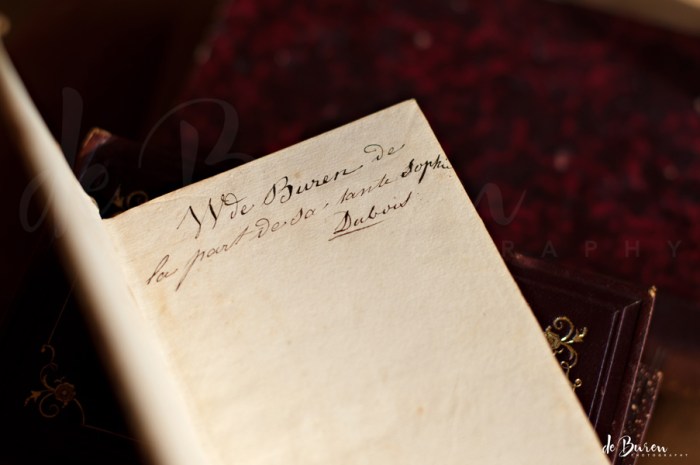 W de Buren de
la part de sa tante Sophie
Dubois
de Buren
PHOTOGRAPHY
de Buren
PHOTOGRAPHY